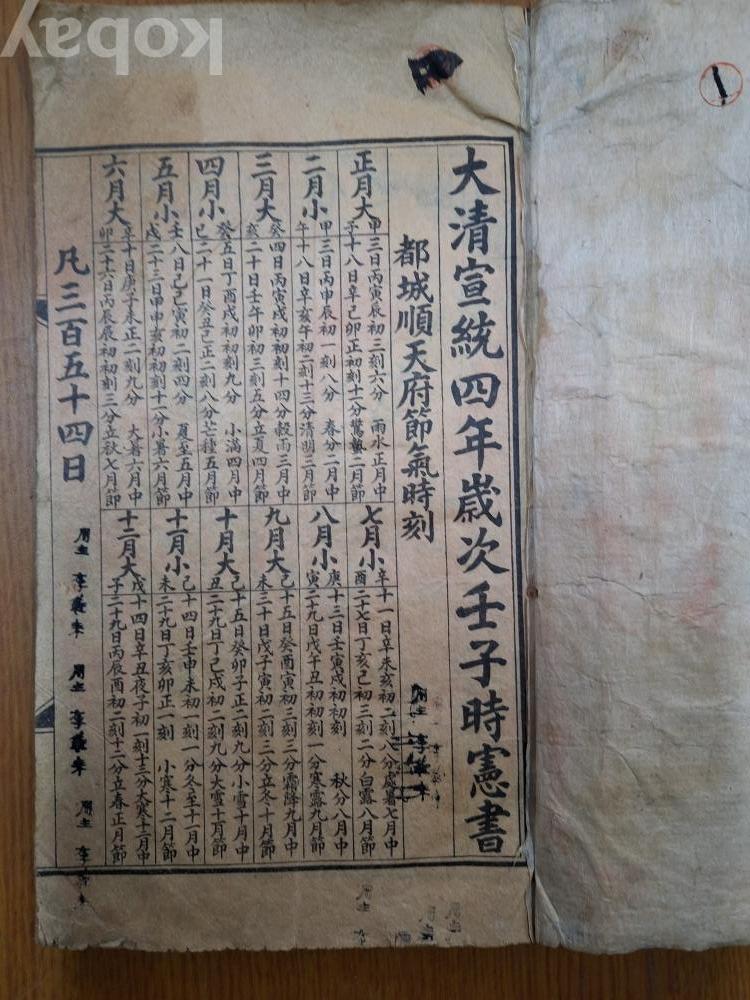 kobay
大清宣統四年歲次壬子時憲書
都城順天府節氣時刻
正月大
甲子
三日丙寅辰初三刻六分 雨水正月中
十八日辛巳卯正初刻十一分驚蟄二月節
二月小
甲午
三日丙申辰初一刻八分 春分二月中
十八日辛亥午初二刻十三分清明三月節
三月大
癸亥
四日丙寅戌初初刻十四分穀雨三月中
二十日壬午卯初三刻五分立夏四月節
四月小
癸巳
五日丁酉戌初初刻九分 小滿四月中
二十一日癸丑巳正二刻八分芒種五月節
五月小
壬戌
八日己巳寅初二刻四分 夏至五月中
二十三日甲申亥初初刻十一分小暑六月節
六月大
辛卯
十日庚子未正二刻九分 大暑六月中
二十六日丙辰辰初初刻三分立秋七月節
七月小
辛酉
十一日辛未亥初二刻八分處暑七月中
二十七日丁亥巳初三刻二分白露八月節
八月小
庚寅
十三日壬寅戌初初刻 秋分八月中
二十九日戊午丑初初刻一分寒露九月節
九月大
己未
十五日癸酉寅初三刻三分霜降九月中
三十日戊子寅初二刻三分立冬十月節
十月大
己丑
十五日癸卯子正二刻九分小雪十月中
二十九日丁巳戌初二刻九分大雪十一月節
十一月小
己未
十四日壬申未初一刻一分冬至十一月中
二十九日丁亥卯正一刻 小寒十二月節
十二月大
戊子
十四日辛丑夜子初一刻十三分大寒十二月中
二十九日丙辰酉初二刻十二分立春正月節
凡三百五十四日